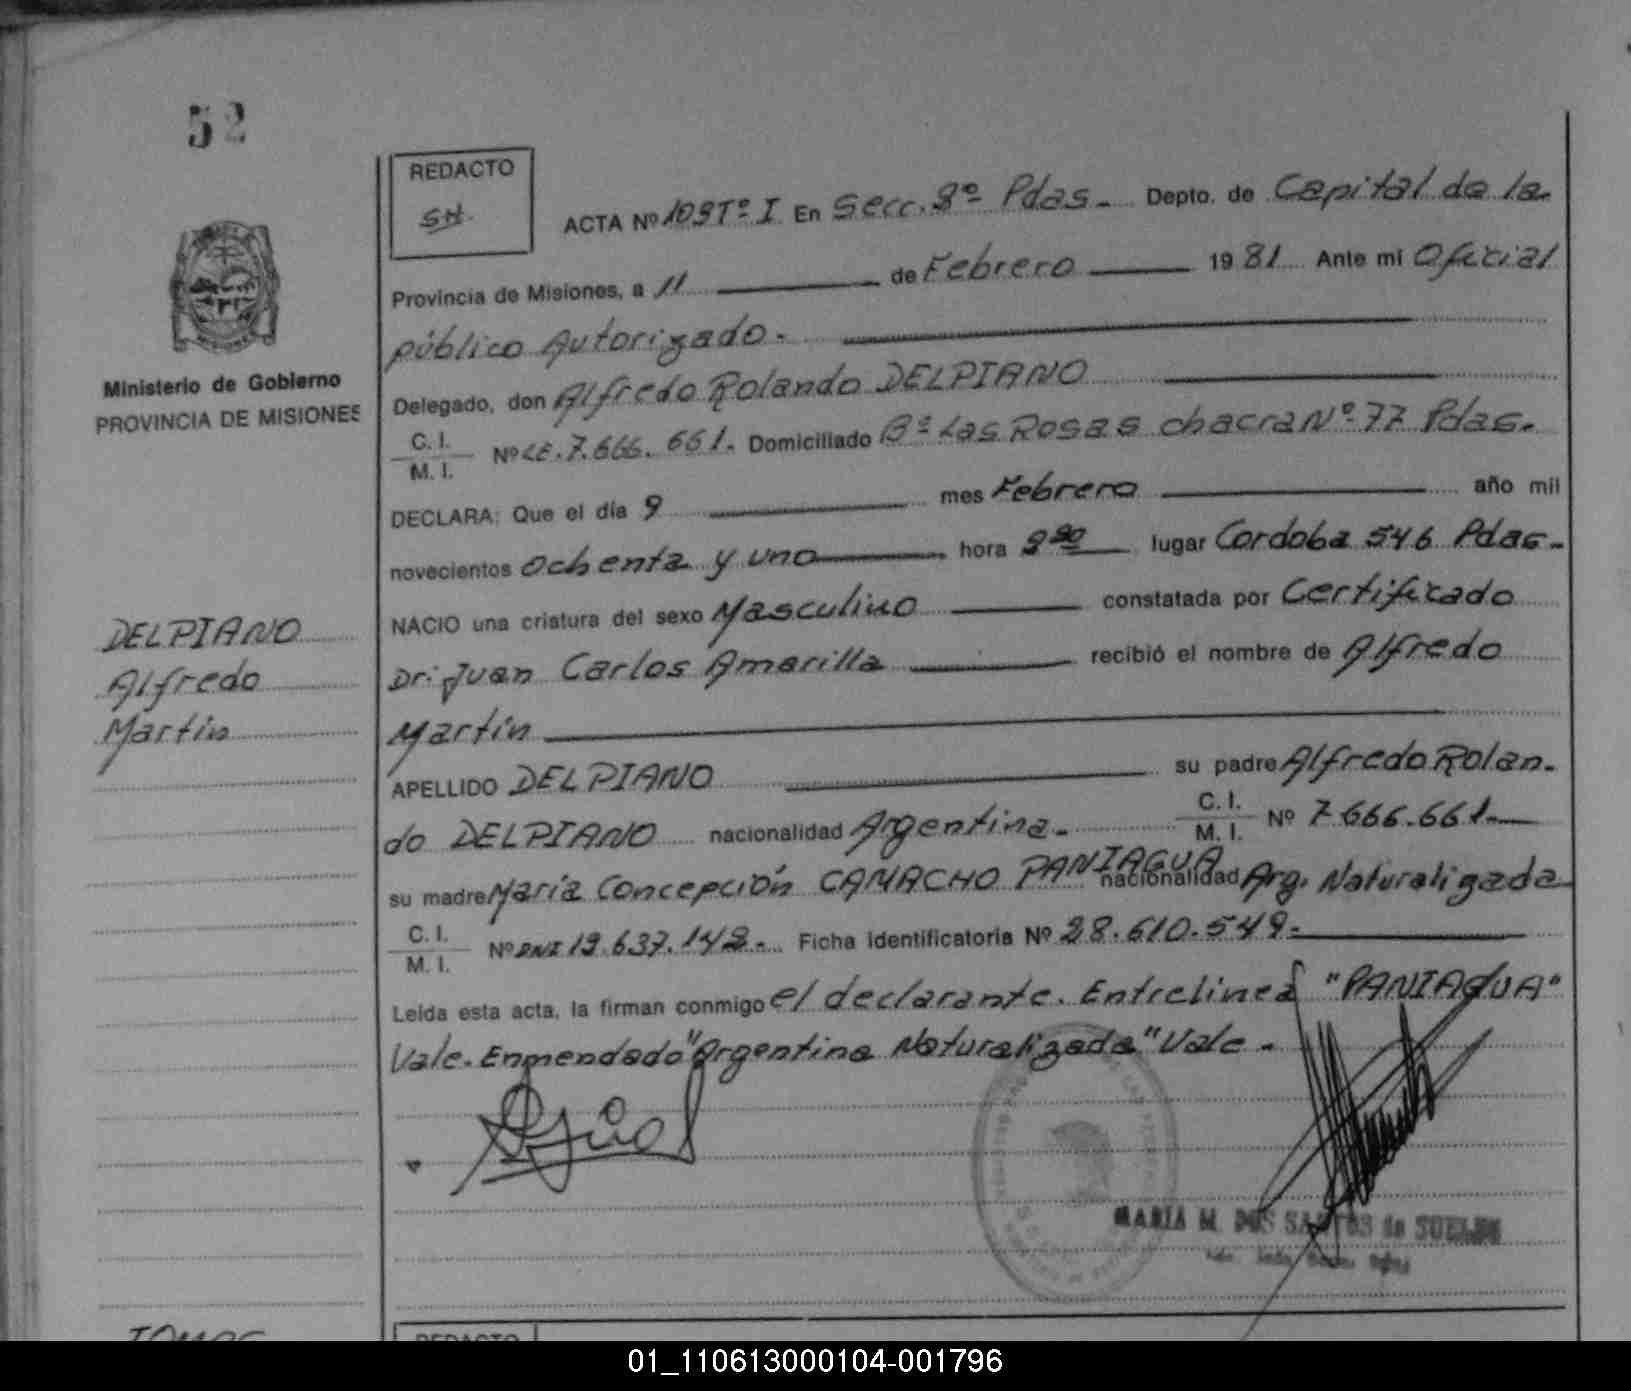 52
REDACTO
SH.
ACTA Nº 109 Tº I En Secc. 8º Pdas. Depto. de Capital de la
Provincia de Misiones, a 11 de Febrero 1981 Ante mi Oficial
público Autorizado.
Ministerio de Gobierno
PROVINCIA DE MISIONES
Delegado, don Alfredo Rolando DELPIANO
C. I.
M. I. Nº LE. 7.666.661. Domiciliado Bº Las Rosas chacra Nº 77 Pdas.
DECLARA: Que el día 9 mes Febrero año mil
novecientos ochenta y uno hora lugar Cordoba 546 Pdas.
NACIO una criatura del sexo Masculino constatada por Certificado
DELPIANO
Alfredo
Martin
Dr: Juan Carlos Amarilla recibió el nombre de Alfredo
Martín
APELLIDO DELPIANO su padre Alfredo Rolan-
do DELPIANO nacionalidad Argentina. C. I.
M. I. Nº 7.666.661.
su madre María Concepción CAMACHO PANIAGUA nacionalidad Arg. Naturalizada
C. I.
M. I. Nº DNI Ficha Identificatoria Nº 28.610.549.
Leída esta acta, la firman conmigo el declarante. Entrelinea "PANIAGUA"
Vale. Enmendado "Argentina Naturalizada" Vale.
MARIA M. DOS SANTOS de
REDACTO
01_110613000104-001796